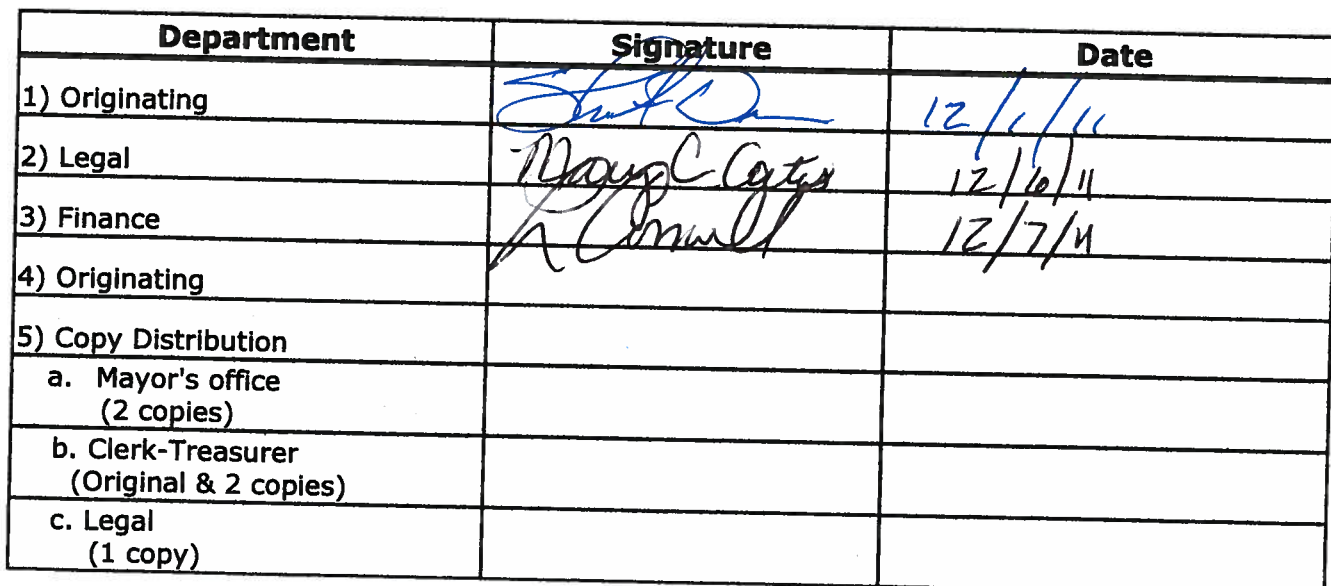 Department Signature Date
1) Originating 12/1/11
2) Legal C 12/6/11
3) Finance 12/7/11
4) Originating
5) Copy Distribution
a. Mayor's office
(2 copies)
b. Clerk-Treasurer
(Original & 2 copies)
c. Legal
(1 copy)